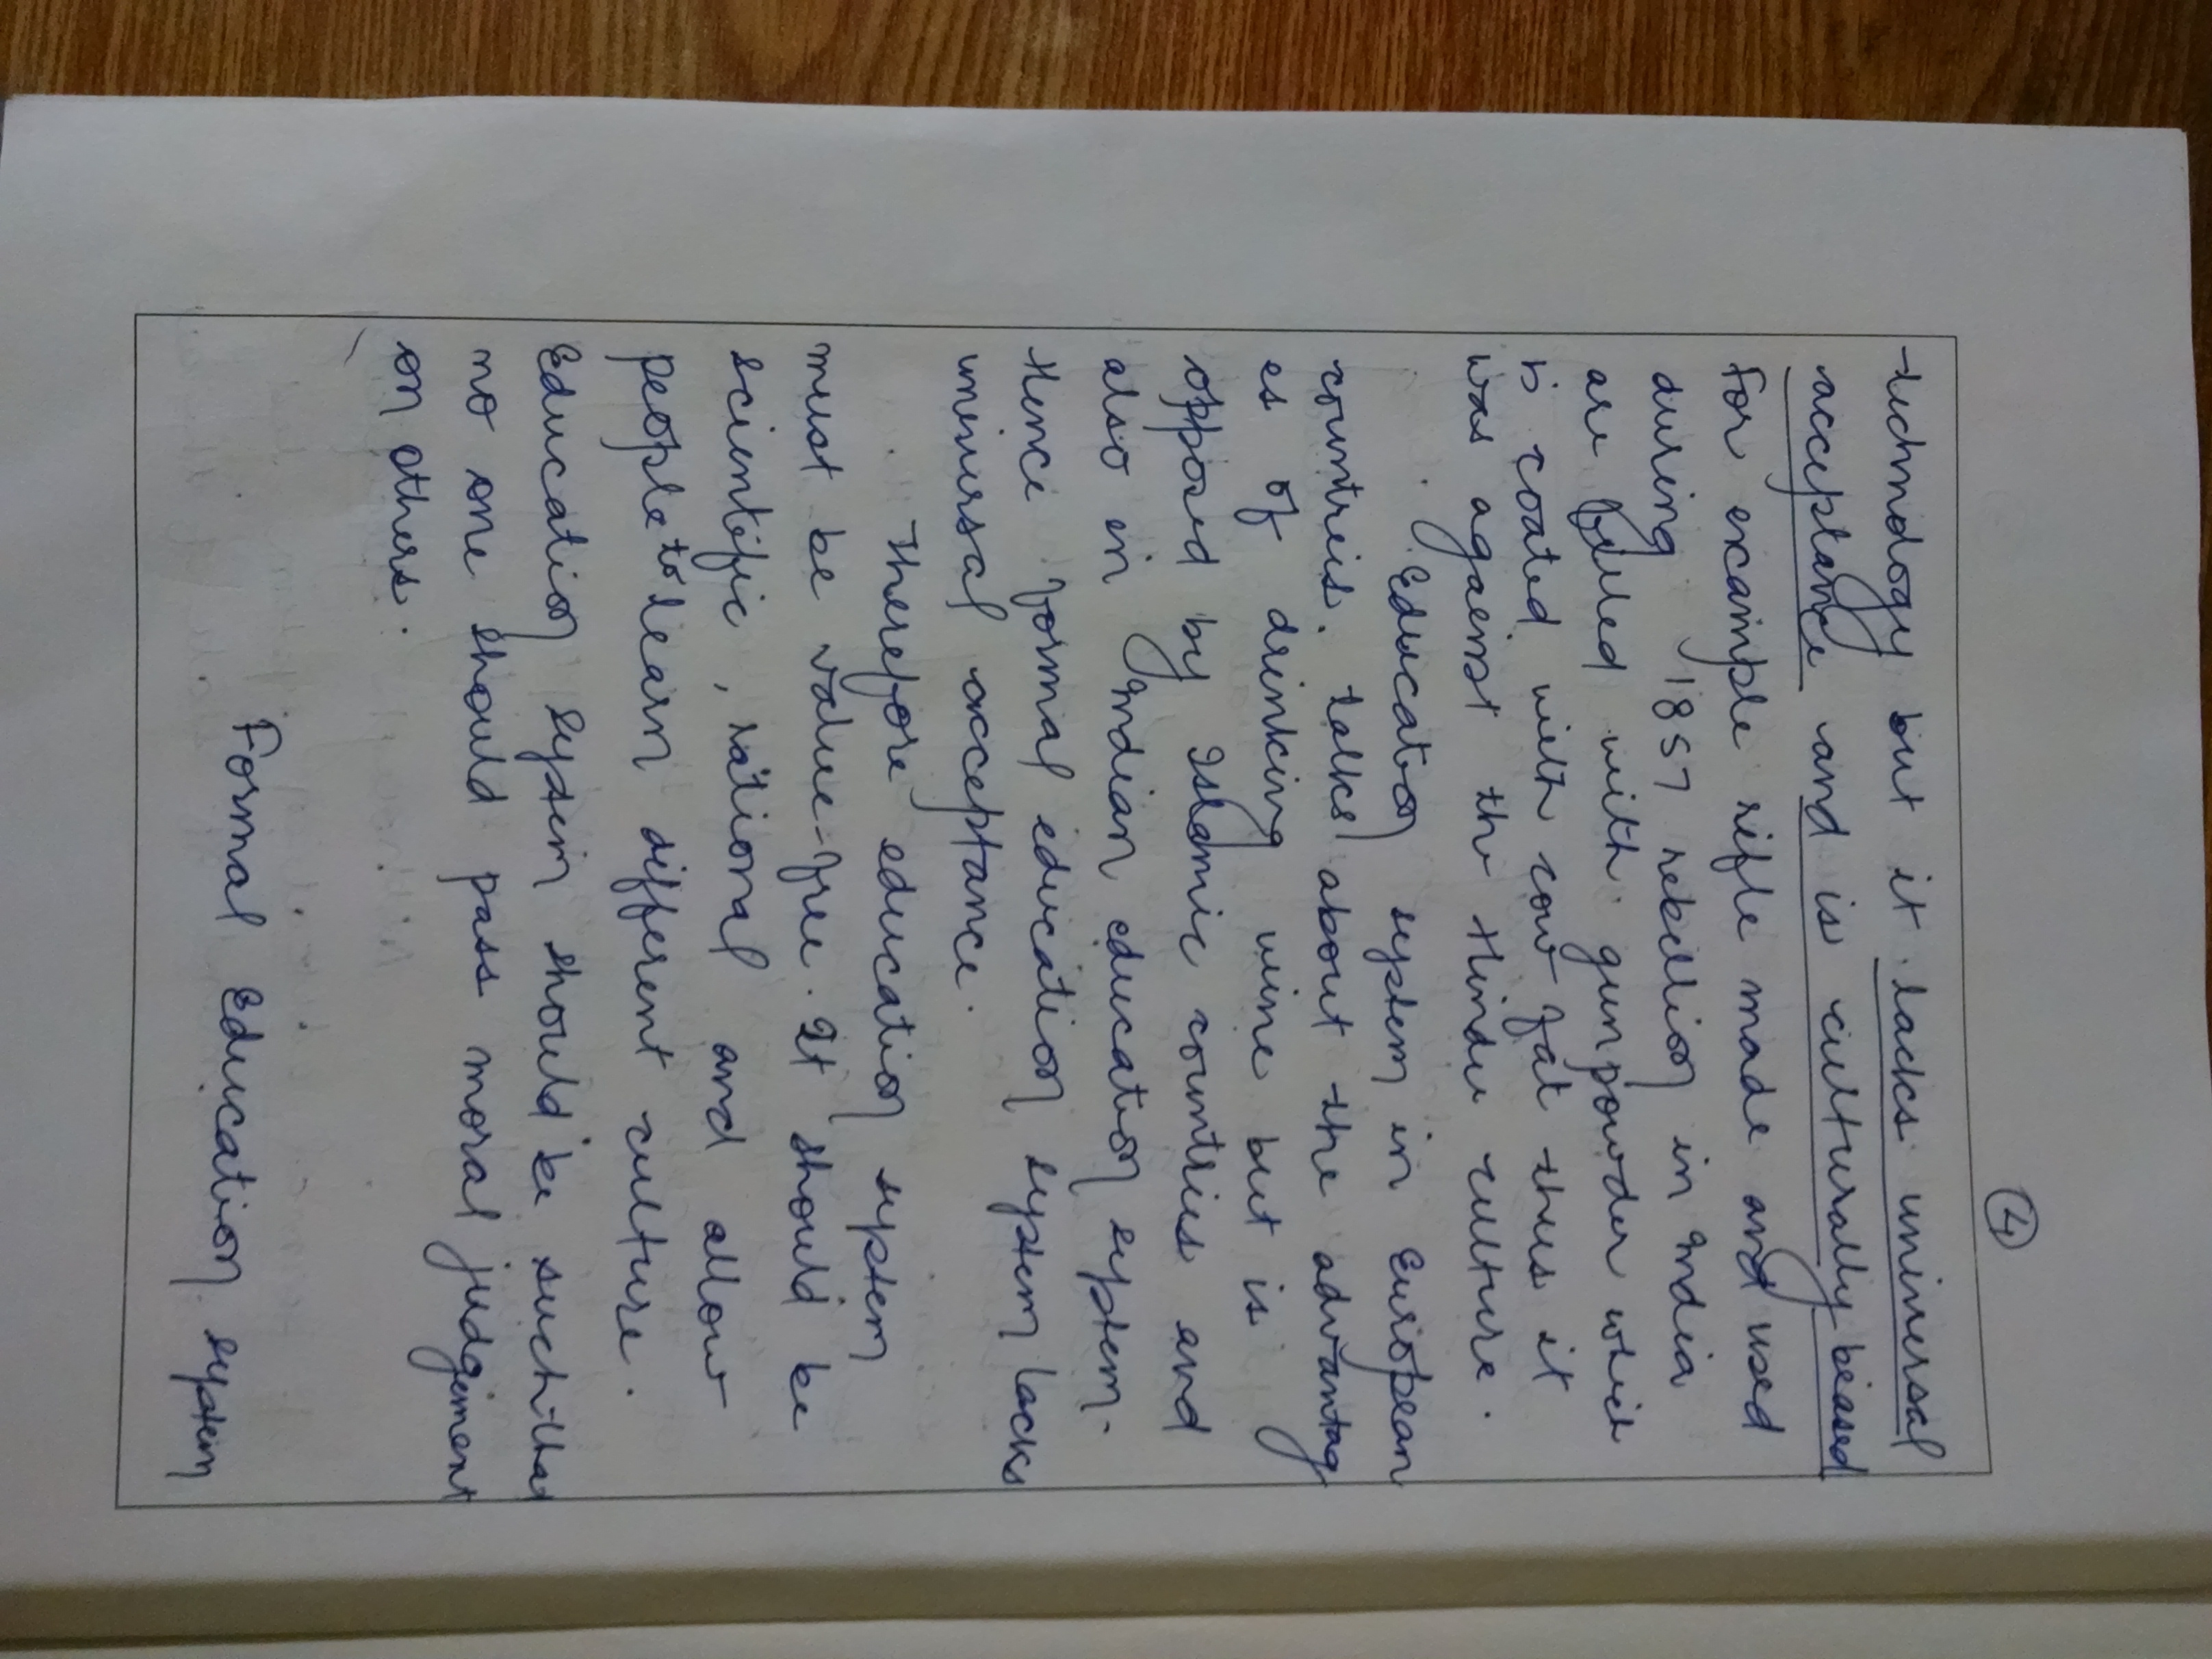 4
technology but it lacks universal
acceptance and is culturally biased
For example rifle made and used
during 1857 rebellion in India
are filled with gunpowder which
is coated with cow fat thus it
was against the Hindu culture.
Education system in European
countries. talks about the advantag
es of drinking wine but is
opposed by Islamic countries and
also in Indian education system.
Hence formal education system lacks
universal acceptance.
Therefore education system
must be value-free. It should be
scientific, rational and allow
people to learn different culture.
Education system should be such that
no one should pass moral judgement
on others.
Formal Education system